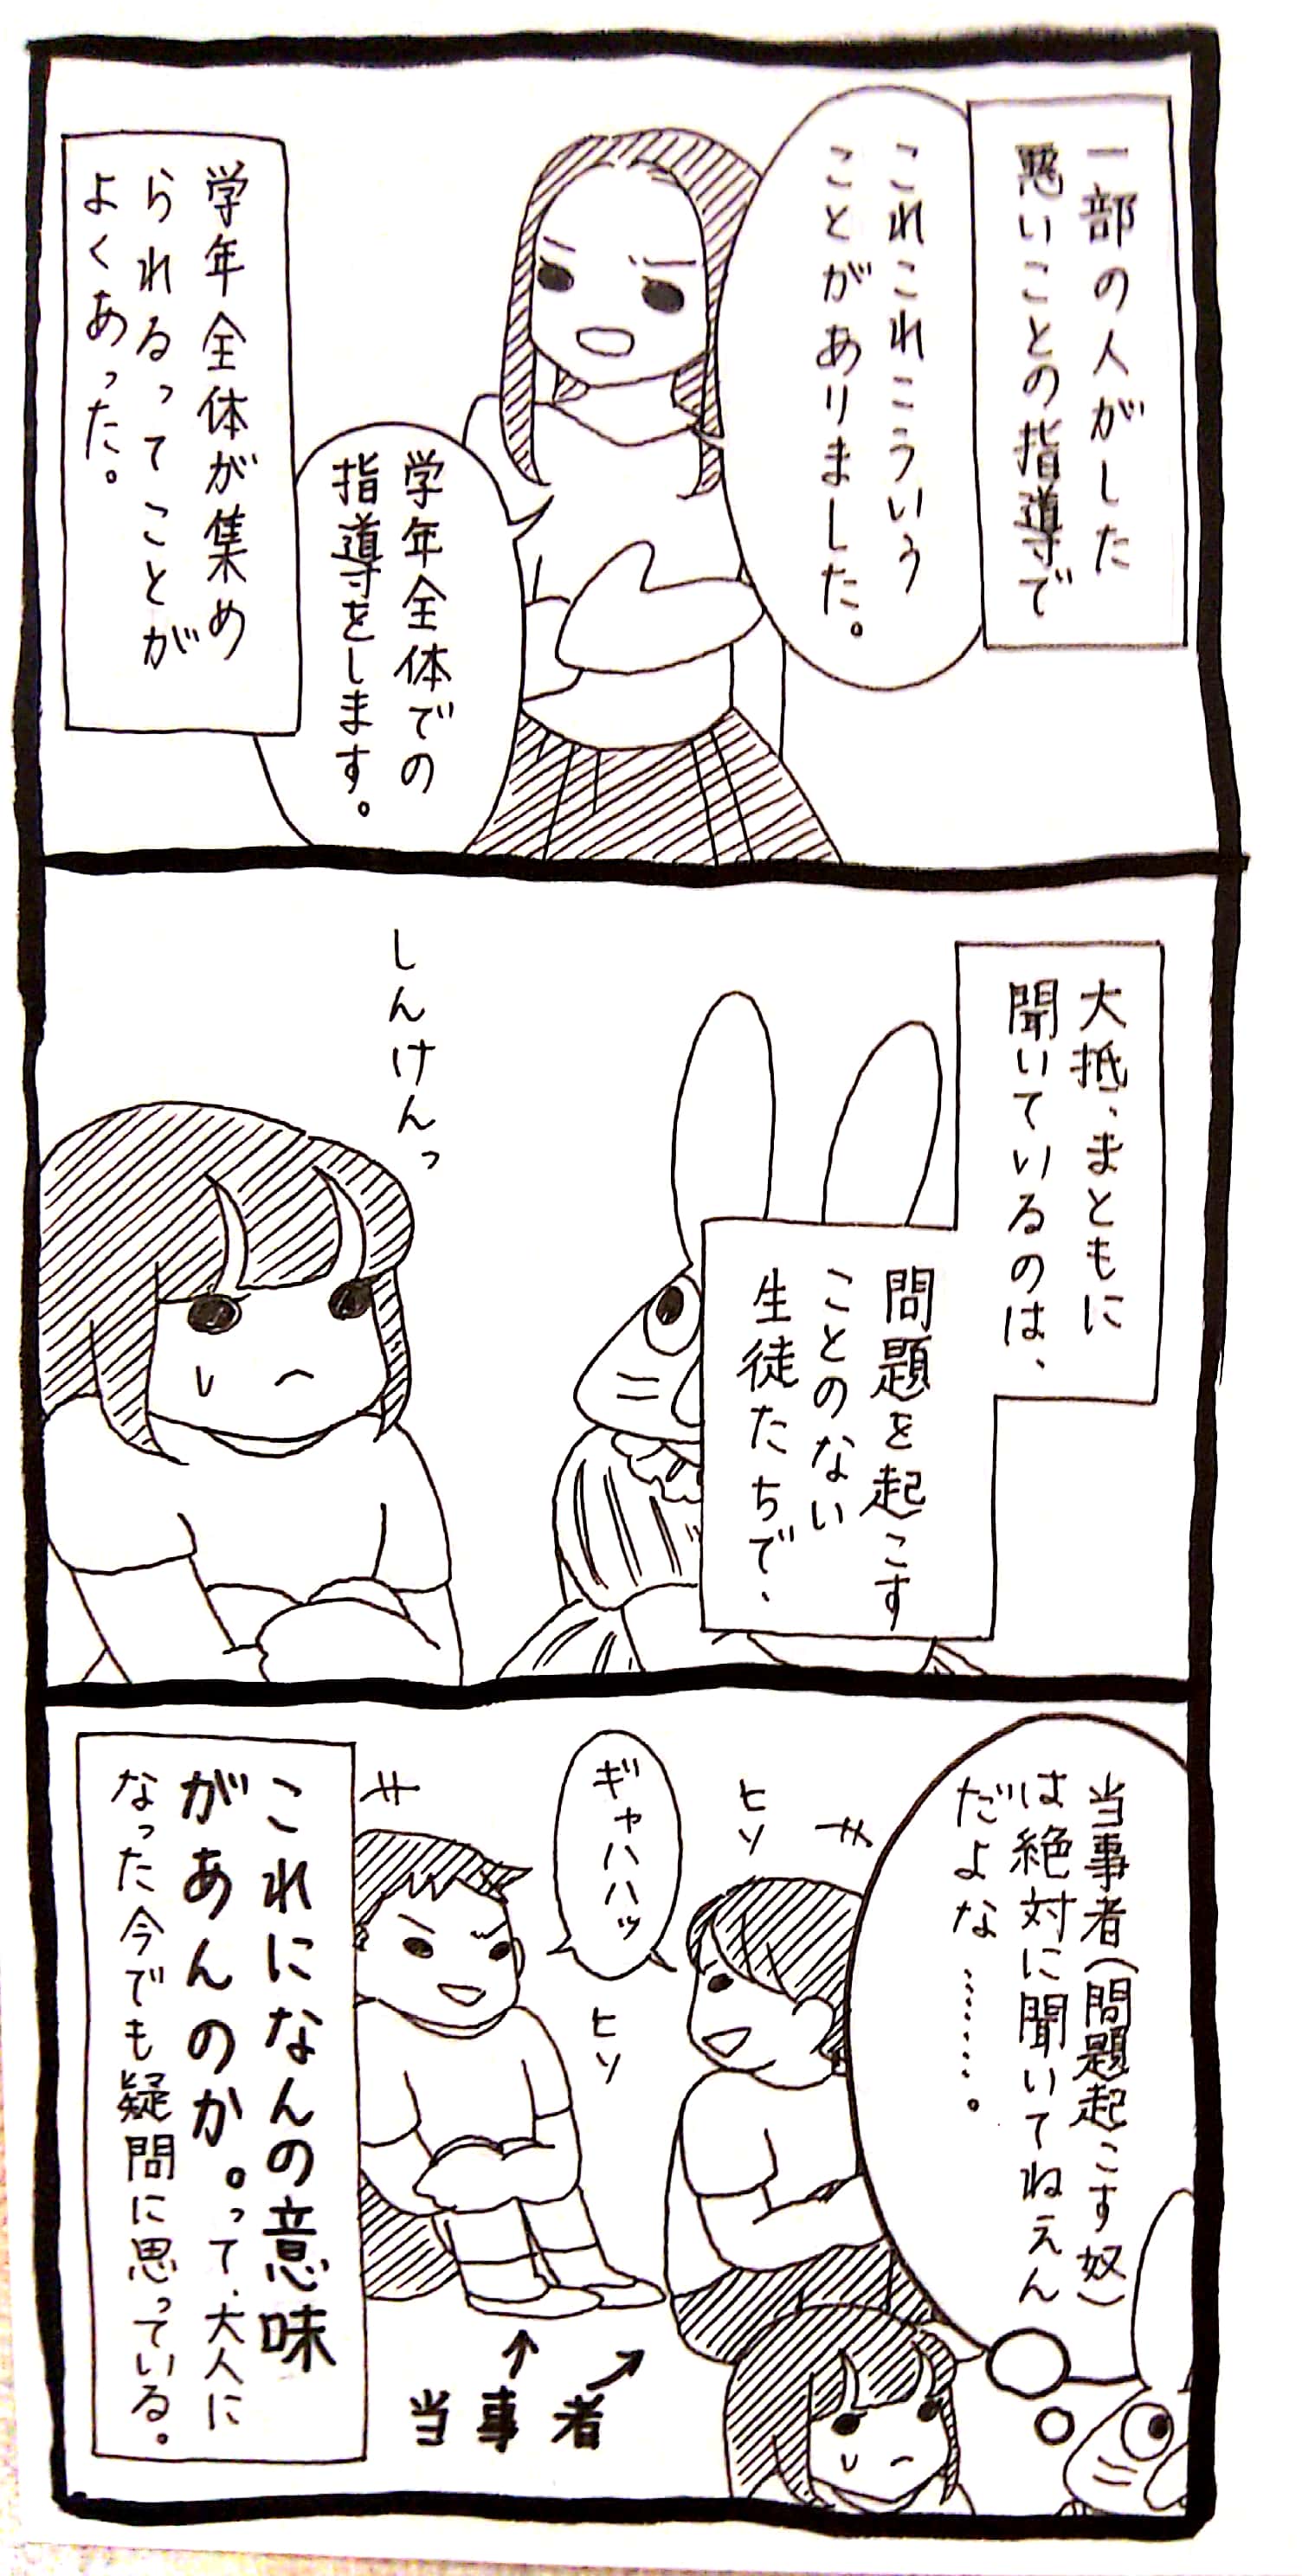 一部の人がした
悪いことの指導で
これこれこういう
ことがありました。
学年全体での
指導をします。
学年全体が集め
られるってことが
よくあった。
大抵、まともに
聞いているのは、
問題を起こす
ことのない
生徒たちで、
しんけんっ
当事者(問題起こす奴)
は絶対に聞いてねえん
だよな………。
ヒソ
ギャハハハッ
ヒソ
当事者
これになんの意味
があんのか。って、大人に
なった今でも疑問に思っている。